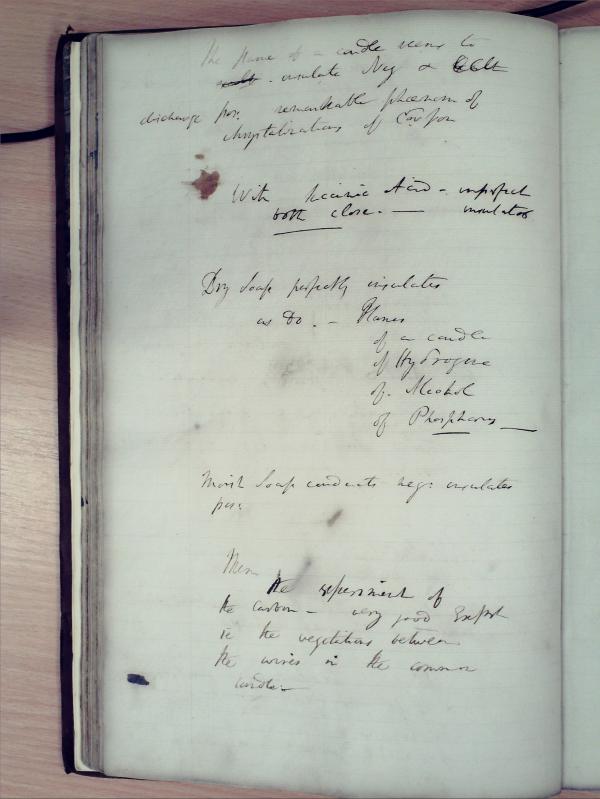 The flame of a candle seems to
insulate Neg &
discharge pos: remarkable phænom of
chrystalizations of Carbon
With Acid - imperfect
both close. — insulator
Dry Soap perfectly insulates
as Do. - Flames
of a candle
of Hydrogene
of Alcohol
of Phosphorus —
Moist Soap conducts neg: insulates
pos:
Mem
the experiment of
the carbon - very good Expt
ie the vegetations between
the wires in the common
candle -